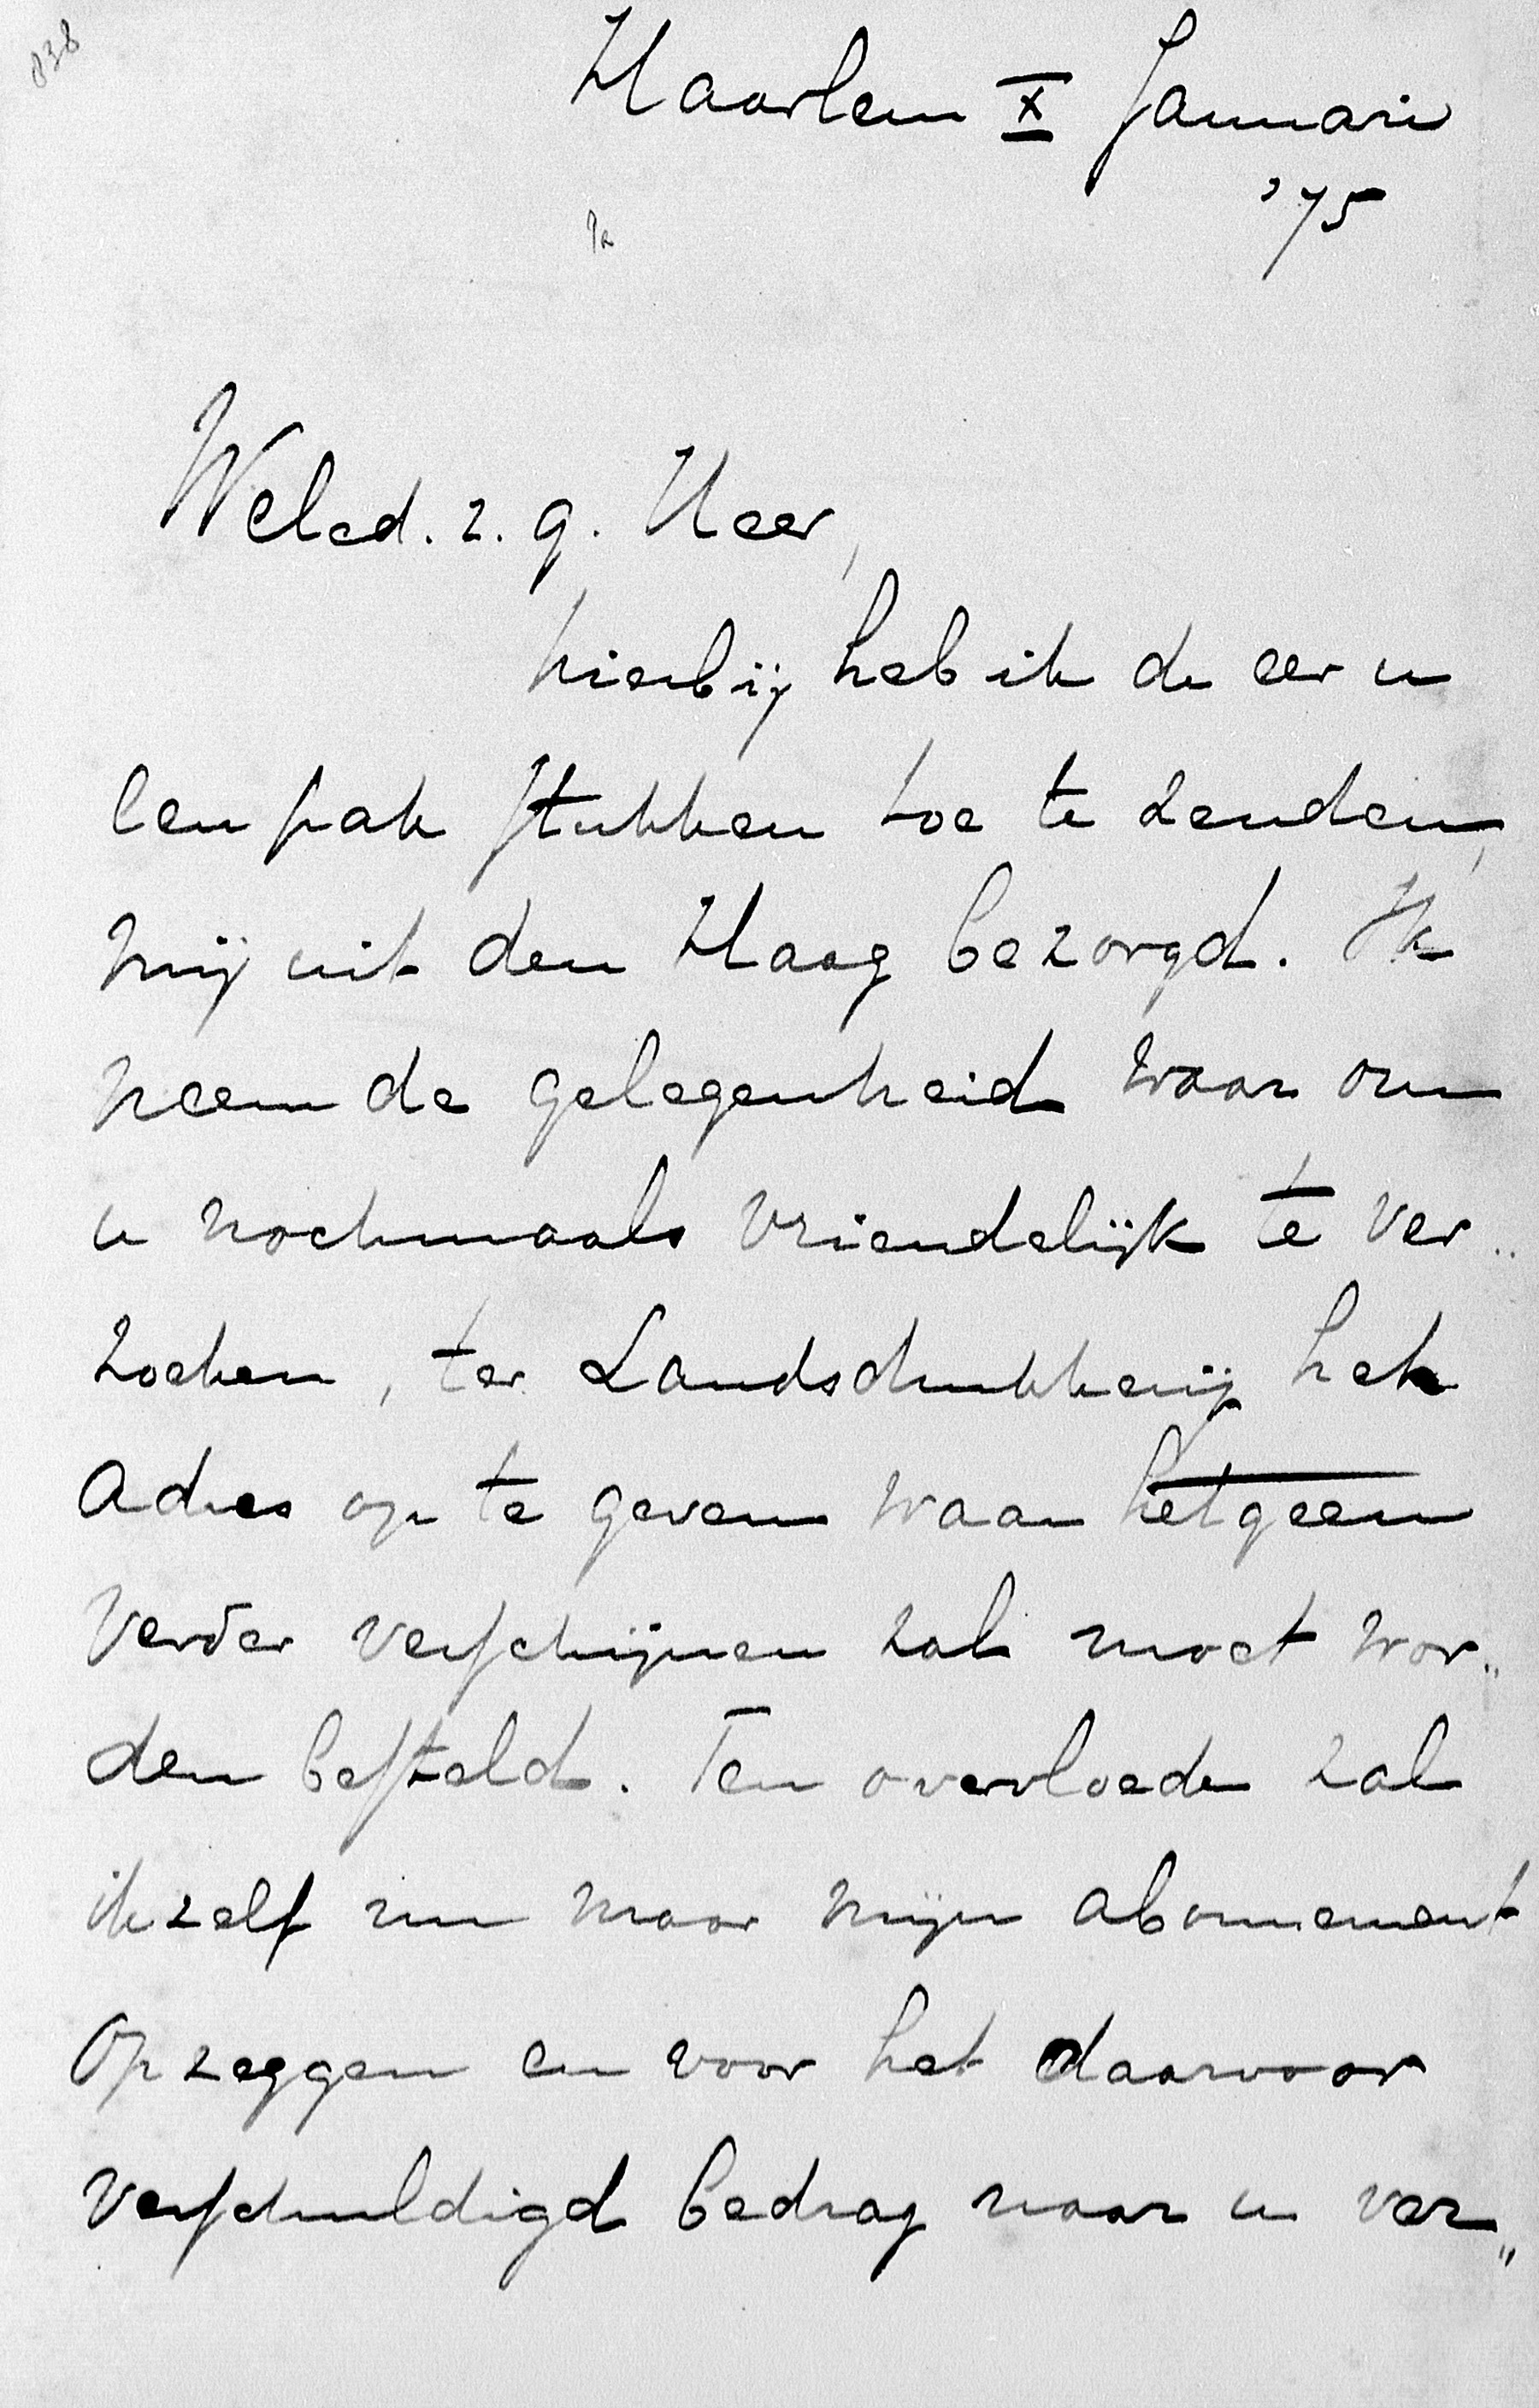 038
Haarlem X Januari
'75
Weled. z. g. Heer,
hierbij heb ik de eer u
een pak stukken toe te zenden,
mij uit den Haag bezorgd. Ik
neem de gelegenheid waar om
u nochmaals vriendelijk te ver„
zoeken, ter Landsdrukkerij het
adres op te geven waar hetgeen
verder verschijnen zal moet wor„
den besteld. Ten overvloede zal
ik zelf nu maar mijn abonnement
opzeggen en voor het daarvoor
verschuldigd bedrag naar u ver„